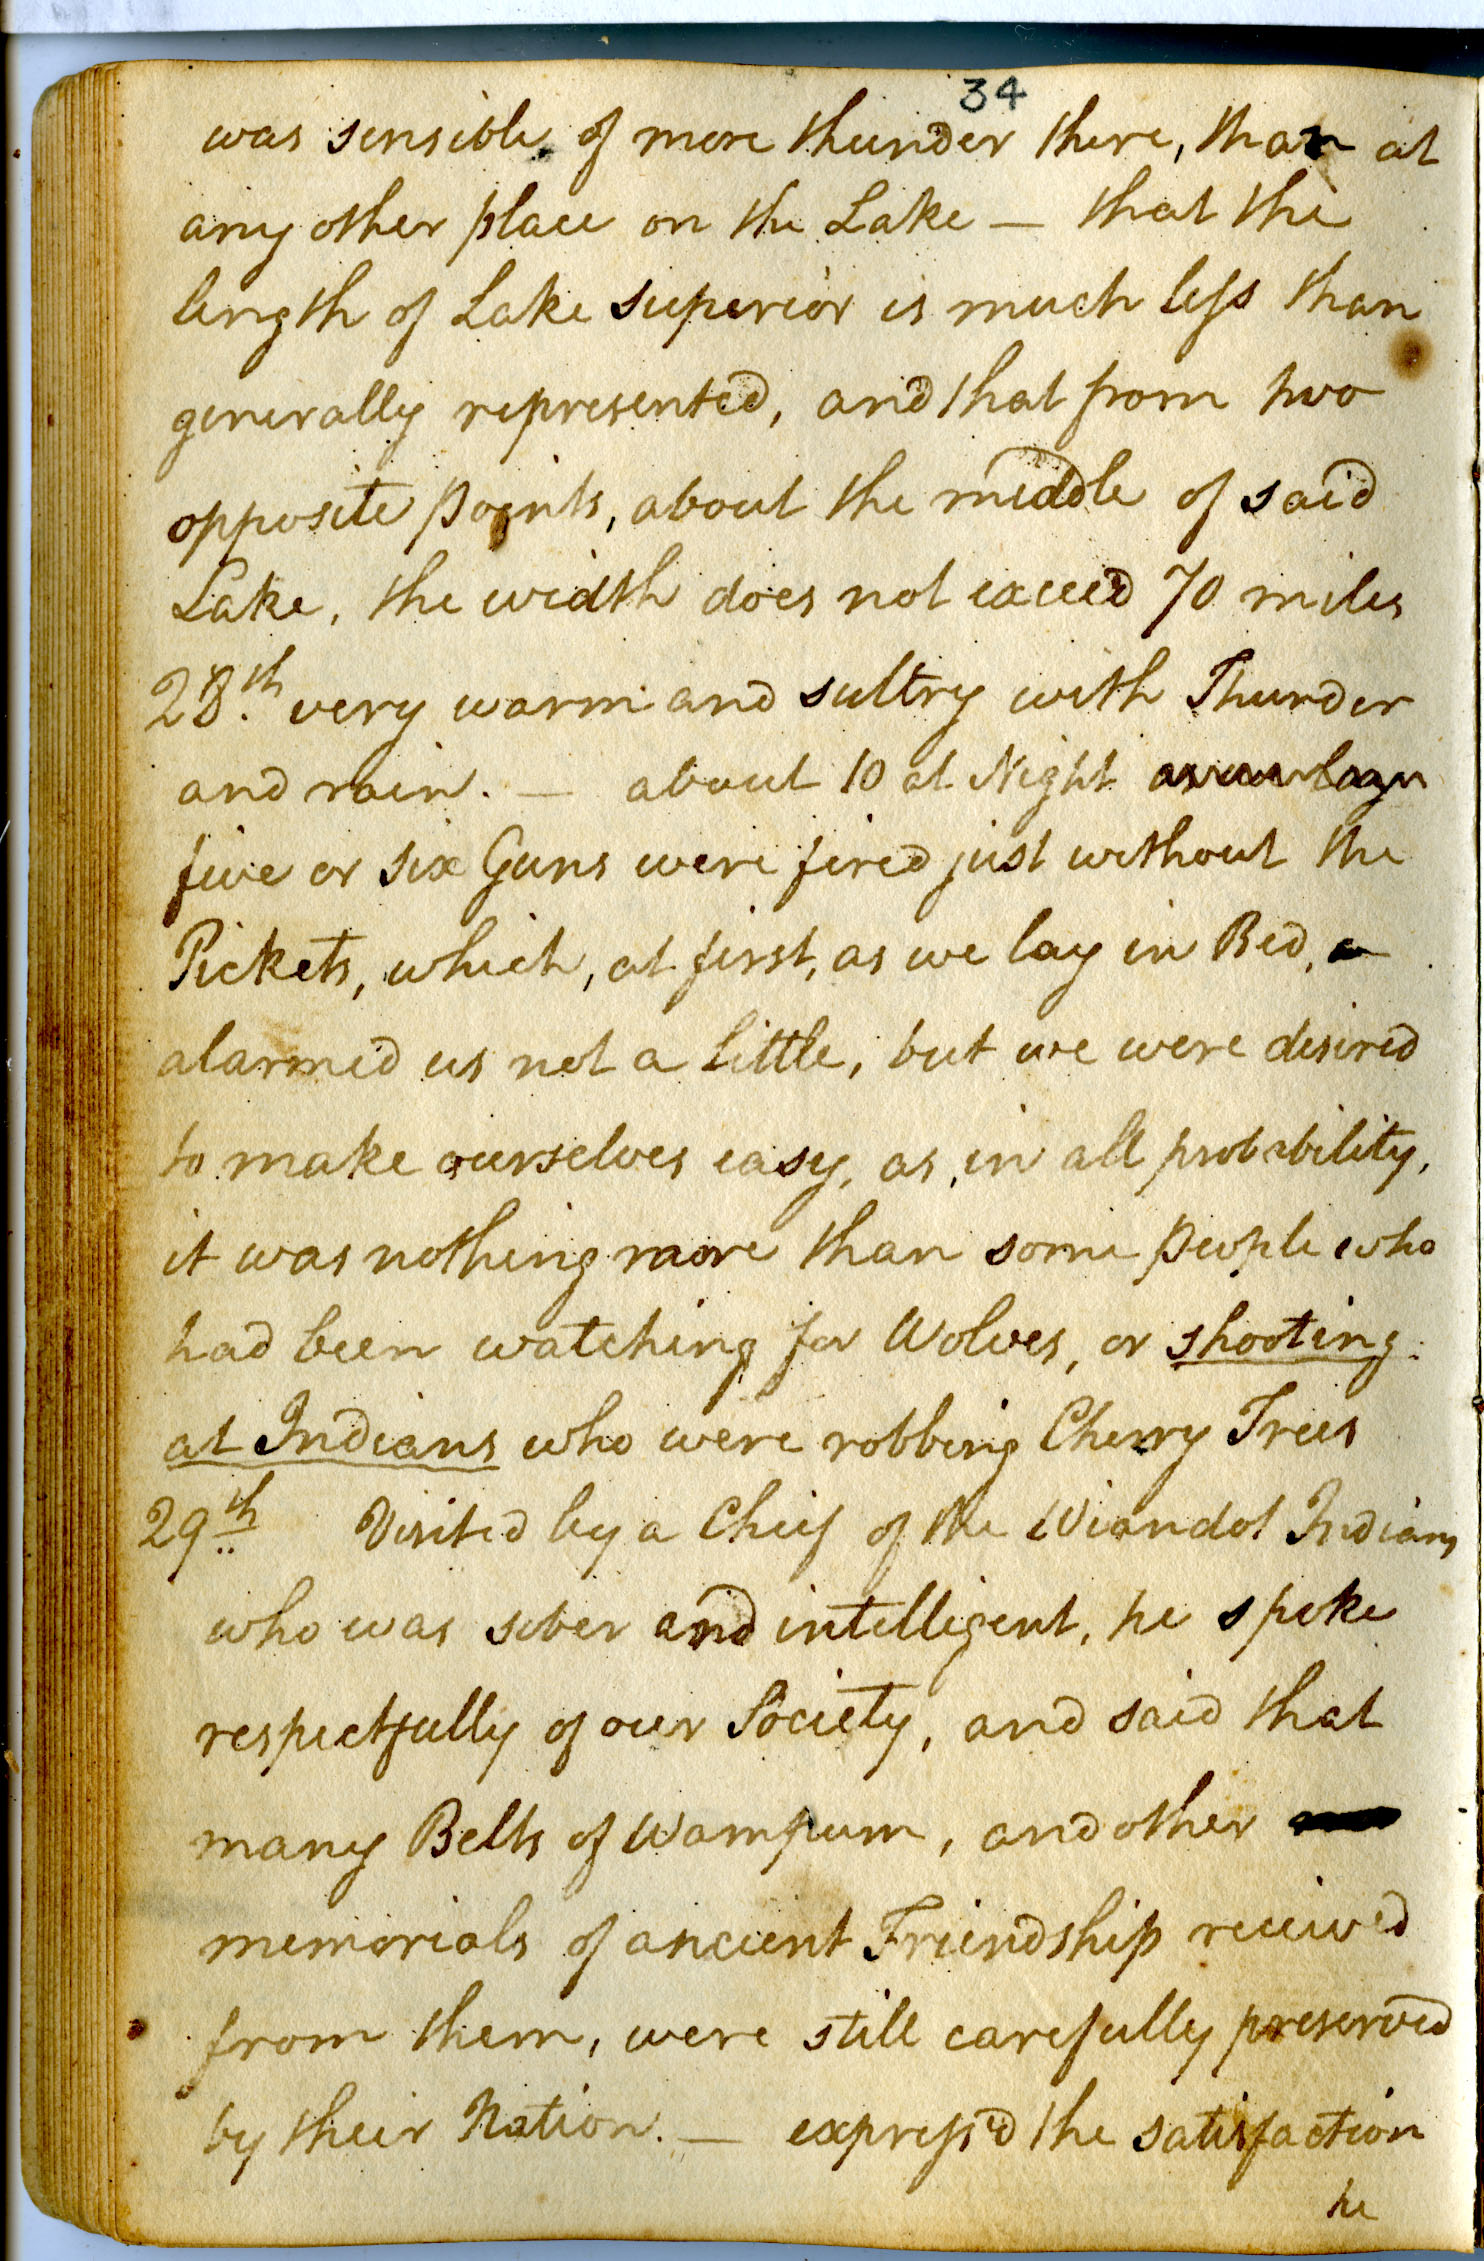 34
was sensible of more thunder there, than at
any other place on the Lake — that the
length of Lake superior is much less than
generally represented, and that from two
opposite points, about the middle of said
Lake, the width does not exceed 70 miles
28th very warm and sultry with Thunder
and rain. — about 10 at Night
five or six Guns were fired just without the
Pickets, which, at first, as we lay in Bed,
alarmed us not a little, but we were desired
to make ourselves easy, as, in all probability,
it was nothing more than some people who
had been watching for Wolves, or shooting
at Indians who were robbing Cherry Trees
29th Visited by a Chief of the Wiandot Indians
who was sober and intelligent, he spoke
respectfully of our Society, and said that
many Belts of Wampum, and other
memorials of ancient Friendship received
from them, were still carefully preserved
by their Nation. — express'd the satisfaction
he